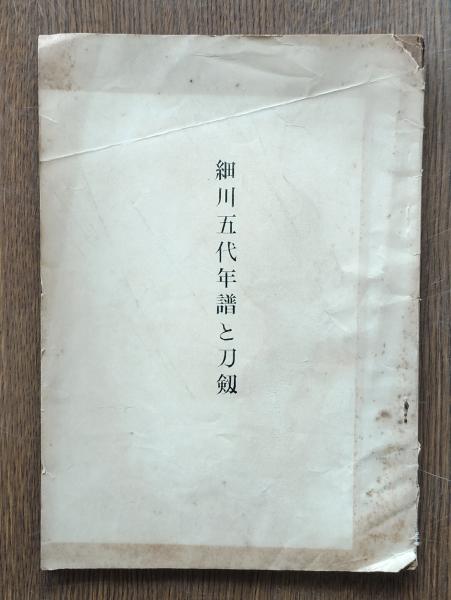 細川五代年譜と刀剱